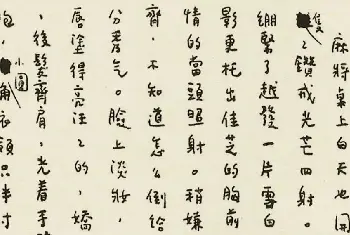 麻將桌上白天也開
隻々鑽戒光芒四射。
繃緊了越發一片雪白
影更托出佳芝的胸前
情的當頭照射。稍嫌
齊,不知道怎么倒給
分秀氣。臉上淡妝,
唇塗得亮汪々的,嬌
,後髮齊肩,光着手
小圓角衣領只半寸